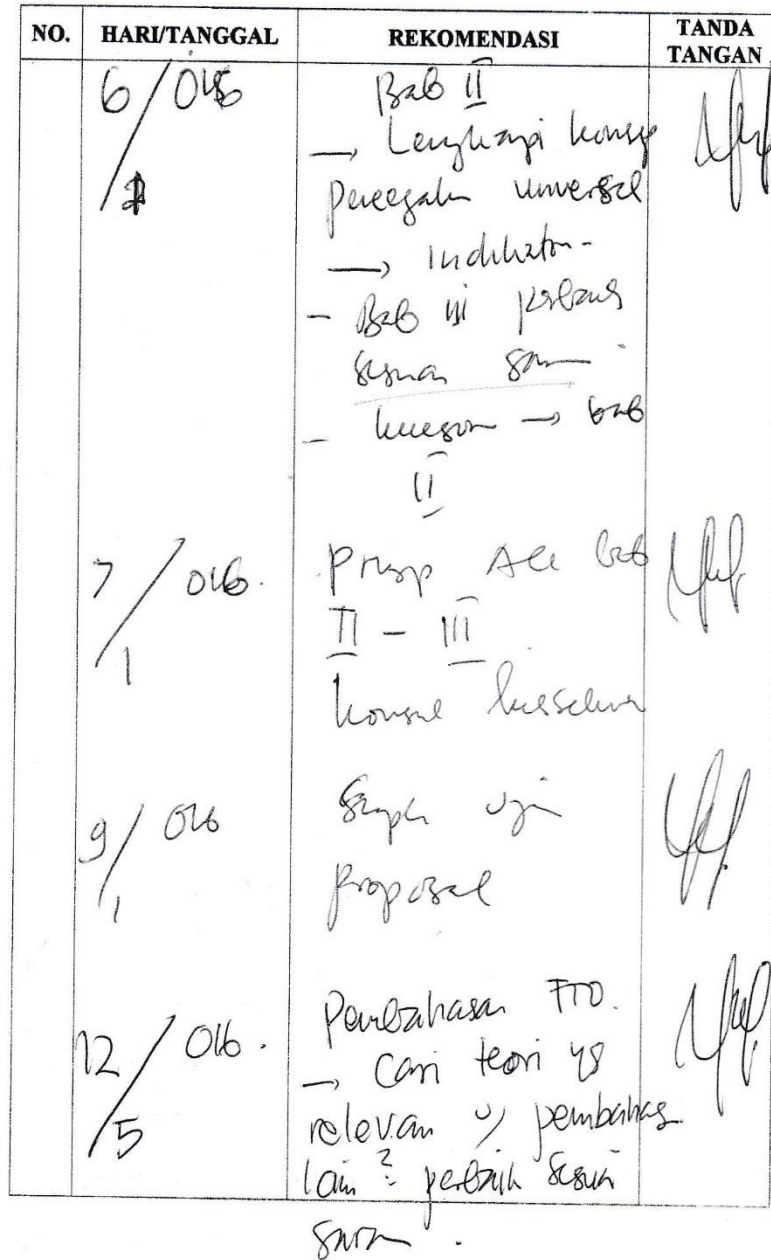 NO. HARI/TANGGAL REKOMENDASI TANDA TANGAN
6/1 016 Bab II
→ Lengkapi konsep
universal
→ Indikator
- Bab III perbaiki
sesuai saran
- → bab
II
7/1 016. Prinsip Acc bab
II - III
konsul
9/1 016 uji
proposal
12/5 016. Pembahasan
→ Cari teori yg
relevan u/ pembahas
lain perbaiki sesuai
saran.